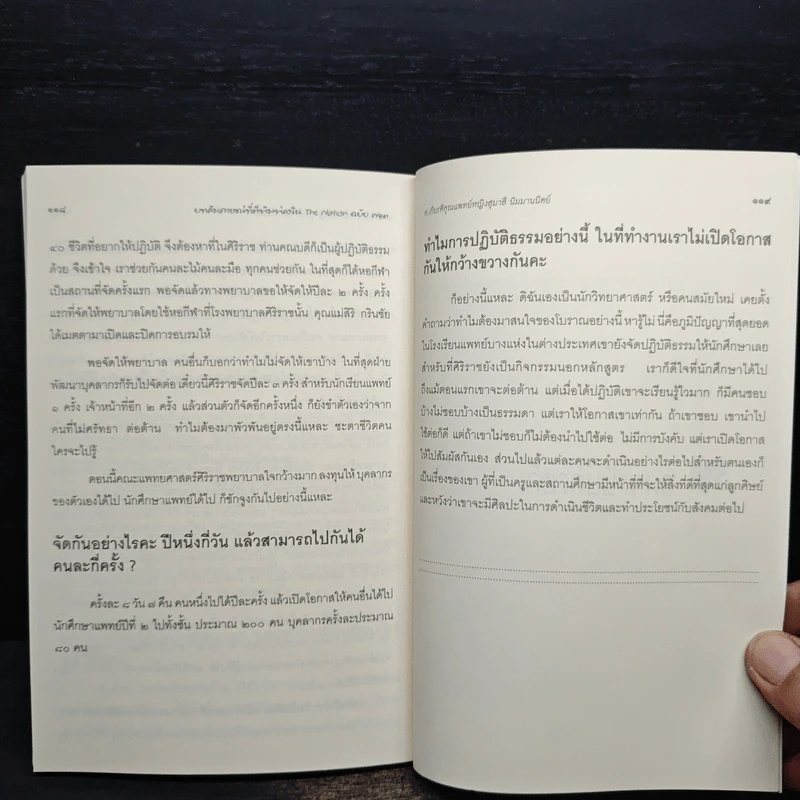 ๑๑๘
บทสัมภาษณ์ที่ตีพิมพ์ลงใน The Nation ฉบับ
๔๐ ชีวิตที่อยากให้ปฏิบัติ จึงต้องหาที่ในศิริราช ท่านคณบดีก็เป็นผู้ปฏิบัติธรรม
ด้วย จึงเข้าใจ เราช่วยกันคนละไม้คนละมือ ทุกคนช่วยกัน ในที่สุดก็ได้หอกีฬา
เป็นสถานที่จัดครั้งแรก พอจัดแล้วทางพยาบาลขอให้จัดให้ปีละ ๒ ครั้ง ครั้ง
แรกที่จัดให้พยาบาลโดยใช้หอกีฬาที่โรงพยาบาลศิริราชนั้น คุณแม่สิริ กรินชัย
ได้เมตตามาเปิดและปิดการอบรมให้
พอจัดให้พยาบาล คนอื่นก็บอกว่าทำไมไม่จัดให้เขาบ้าง ในที่สุดฝ่าย
พัฒนาบุคลากรก็รับไปจัดต่อ เดี๋ยวนี้ศิริราชจัดปีละ ๓ ครั้ง สำหรับนักเรียนแพทย์
๑ ครั้ง เจ้าหน้าที่อีก ๒ ครั้ง แล้วส่วนตัวก็จัดอีกครั้งหนึ่ง ก็ยังขำตัวเองว่าจาก
คนที่ไม่ศรัทธา ต่อต้าน ทำไมต้องมาพัวพันอยู่ตรงนี้แหละ ชะตาชีวิตคน
ใครจะไปรู้
ตอนนี้คณะแพทยศาสตร์ศิริราชพยาบาลใจกว้างมาก ลงทุนให้ บุคลากร
ของตัวเองได้ไป นักศึกษาแพทย์ได้ไป ก็ชักจูงกันไปอย่างนี้แหละ
จัดกันอย่างไรคะ ปีหนึ่งกี่วัน แล้วสามารถไปกันได้
คนละกี่ครั้ง ?
ครั้งละ ๘ วัน ๗ คืน คนหนึ่งไปได้ปีละครั้ง แล้วเปิดโอกาสให้คนอื่นได้ไป
นักศึกษาแพทย์ปีที่ ๒ ไปทั้งชั้น ประมาณ ๒๐๐ คน บุคลากรครั้งละประมาณ
๘๐ คน
ศ.เกียรติคุณแพทย์หญิงสุมาลี นิมมานนิตย์
๑๑๙
ทำไมการปฏิบัติธรรมอย่างนี้ ในที่ทำงานเราไม่เปิดโอกาส
กันให้กว้างขวางกันคะ
ก็อย่างนี้แหละ ดิฉันเองเป็นนักวิทยาศาสตร์ หรือคนสมัยใหม่ เคยตั้ง
คำถามว่าทำไมต้องมาสนใจของโบราณอย่างนี้ หารู้ไม่ นี่คือภูมิปัญญาที่สุดยอด
ในโรงเรียนแพทย์บางแห่งในต่างประเทศเขายังจัดปฏิบัติธรรมให้นักศึกษาเลย
สำหรับที่ศิริราชยังเป็นกิจกรรมนอกหลักสูตร เราก็ดีใจที่นักศึกษาได้ไป
ถึงแม้ตอนแรกเขาจะต่อต้าน แต่เมื่อได้ปฏิบัติเขาจะเรียนรู้ไวมาก ก็มีคนชอบ
บ้างไม่ชอบบ้างเป็นธรรมดา แต่เราให้โอกาสเขาเท่ากัน ถ้าเขาชอบ เขานำไป
ใช้ต่อก็ดี แต่ถ้าเขาไม่ชอบก็ไม่ต้องนำไปใช้ต่อ ไม่มีการบังคับ แต่เราเปิดโอกาส
ให้ไปสัมผัสกันเอง ส่วนไปแล้วแต่ละคนจะดำเนินอย่างไรต่อไปสำหรับตนเองก็
เป็นเรื่องของเขา ผู้ที่เป็นครูและสถานศึกษามีหน้าที่ที่จะให้สิ่งที่ดีที่สุดแก่ลูกศิษย์
และหวังว่าเขาจะมีศิลปะในการดำเนินชีวิตและทำประโยชน์กับสังคมต่อไป